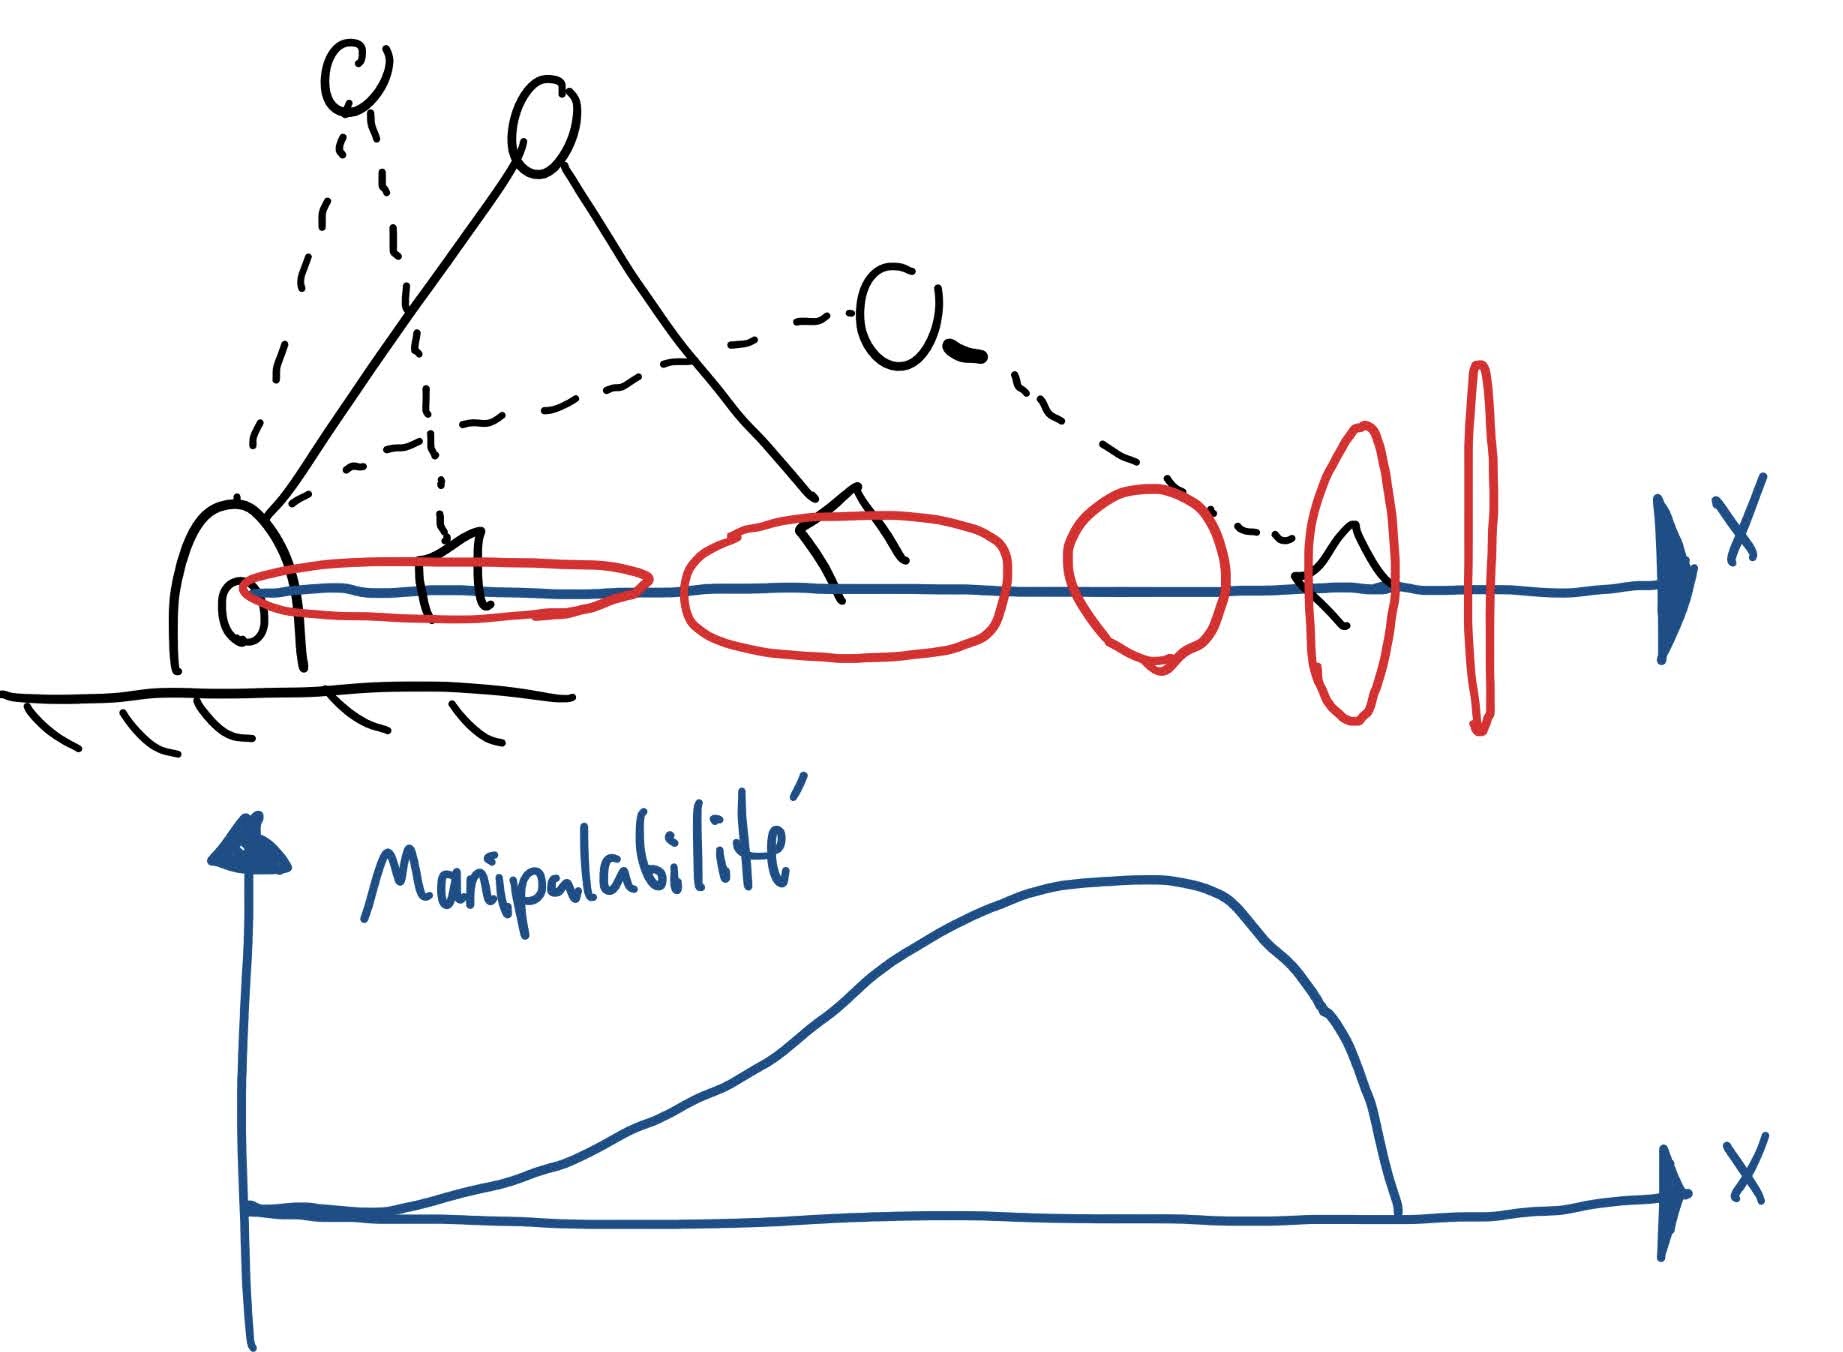 X
Manipulabilité
X